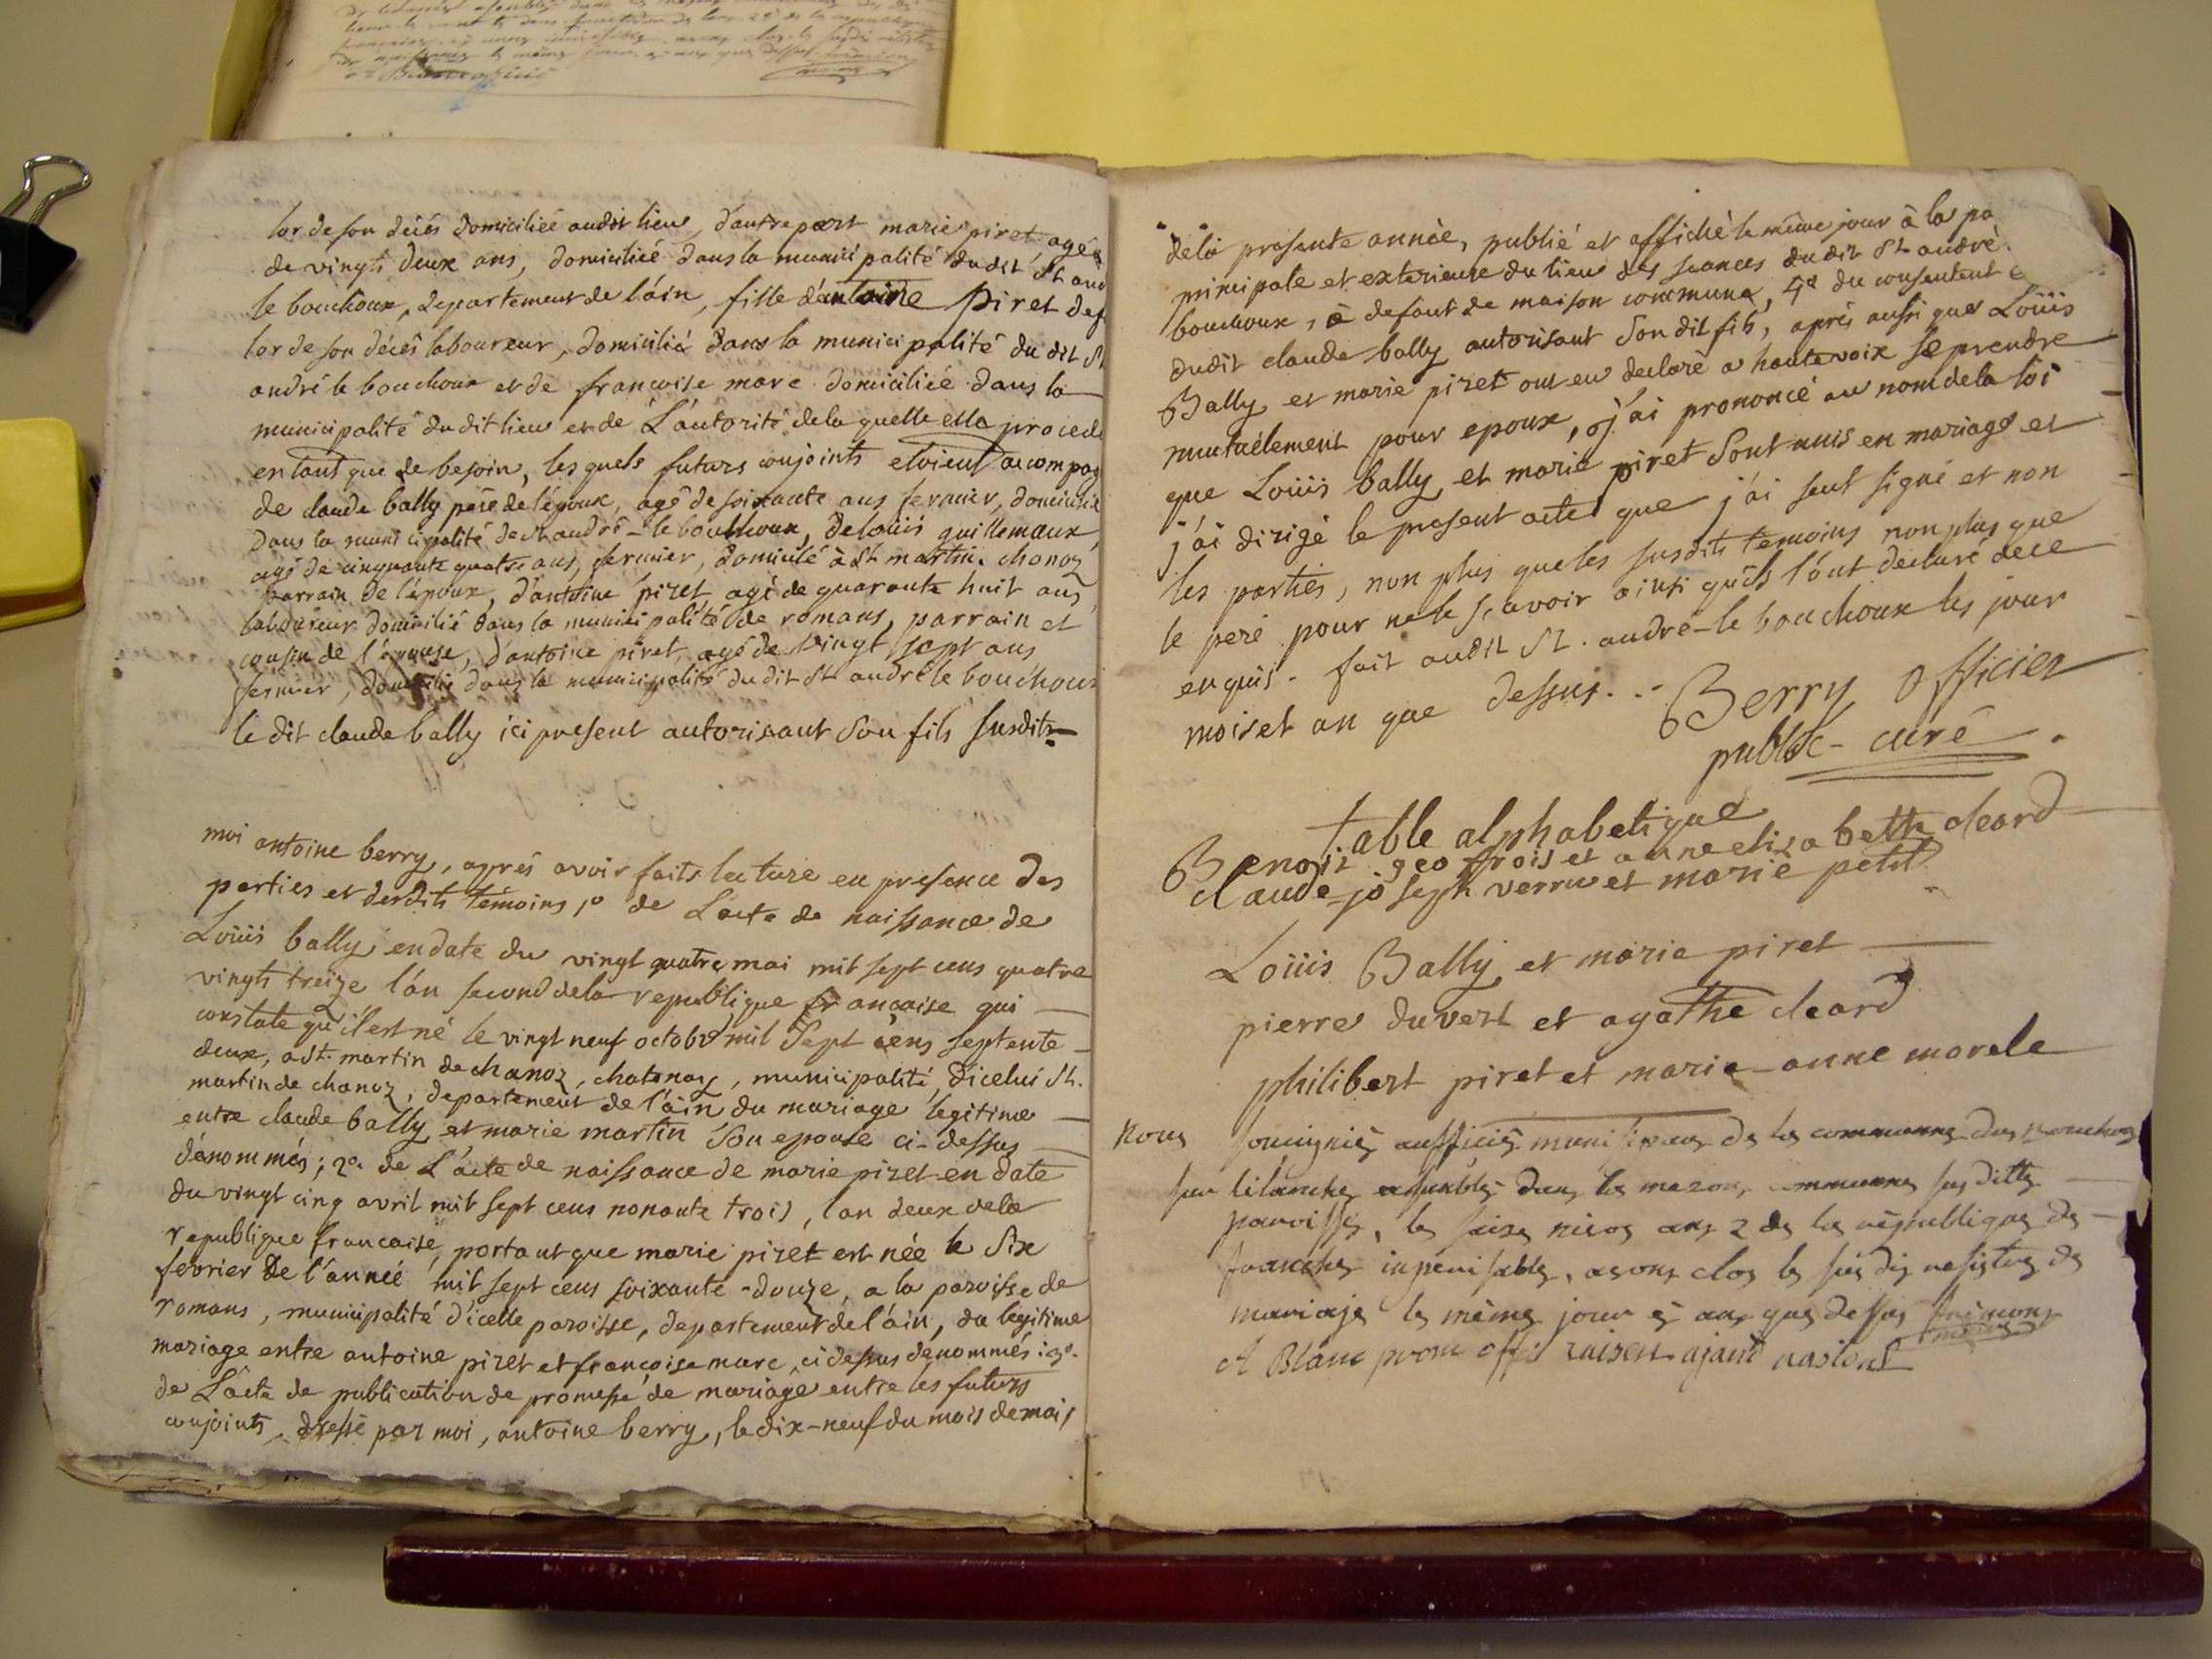 lor de son décés domiciliée audit lieu, d'autre part marie piret, agée
de vingts deux ans, domiciliée dans la municipalité du dit St and
le bouchoux, departement de l'áin, fille d'antoine piret def
lor de son décés laboureur, domicilié dans la municipalité du dit St
andré le bouchoux et de francoise marc domiciliée dans la
municipalité du dit lieu et de L'autorité de la quelle ella procede
en tant que de besoin, les quels futurs conjoints etoient accompag
de claude bally pere de l'époux, agé de soixante ans fermier, domicilié
dans la municipalité de st andré-le bouchoux, de loüis guillemaux,
agé de cinquante quatre ans, fermier, domicilé à St martin chanoz
parrain de l'époux, d'antoine piret, agé de quarante huit ans,
laboureur domicilié dans la municipalité de romans, parrain et
cousin de l'épouse, d'antoine piret, agé de vingt sept ans
fermier, domicilié dans la municipalité du dit St andré le bouchoux
le dit claude bally ici present autorisant son fils susdit
moi antoine berry, aprés avoir faits lecture en presence des
parties et desdits témoins, 1o de L'acte de naissance de
Loüis bally en date du vingt quatre mai mil sept cens quatre
vingts treize l'án second dela republique francaise qui
constate qu'il est né le vingt neuf octobre mil Sept cens septente
deux, a St. martin de chanoz, chatenay, municipalité, d'icelui St.
martin de chanoz, departement de l'áin du mariage legitime
entre claude bally et marie martin son epouse ci-dessus
dénommés; 2o. de L'acte de naissance de marie piret en date
du vingt cinq avril mil sept cens nonante trois, l'an deux dela
republique francaise, portant que marie piret est née le six
fevrier de l'année mil sept cens soixante-douze, a la paroisse de
romans, municipalité d'icelle paroisse, departement de l'áin, du legitime
mariage entre antoine piret et françoise marc, ci dessus denommés: 3o.
de L'acte de publication de promesse de mariage entre les futurs
conjoints, dressé par moi, antoine berry, le dix-neuf du mois de mai,
dela presente année, publié et affiché le même jour à la po
principale et exterieure du lieu des seances du dit St andré
bouchoux, à defaut de maison commune, 4o du consentent
dudit claude bally autorisant son dit fils, aprés aussi que Loüis
Bally et marie piret ont eu declaré a haute voix se prendre
mutuélement pour epoux, j'ai prononcé au nom dela loi
que Loüis bally, et marie piret sont unis en mariage et
j'ái dirigé le present acte que j'ái seul signé et non
les parties, non plus que les susdits temoins non plus que
le peré pour ne le scavoir ainsi qu'ils l'ónt declaré de ce
enquis. fait audit St. andré-le bouchoux les jour
mois et an que dessus. .. Berry Officier
public - curé.
table alphabetique
Benoit geoffrois et anne elisabeth cleard
claude-joseph verru et marie petit
Loüis Bally et marie piret
pierre duvert et agathe cleard
philibert piret et marie-anne morele
nous souignies aufficiés munisipaux de la commune
paroisse, la saise nivos ans 2 de la républiques
mariaje le même jour é ans que dessus
A Blanc